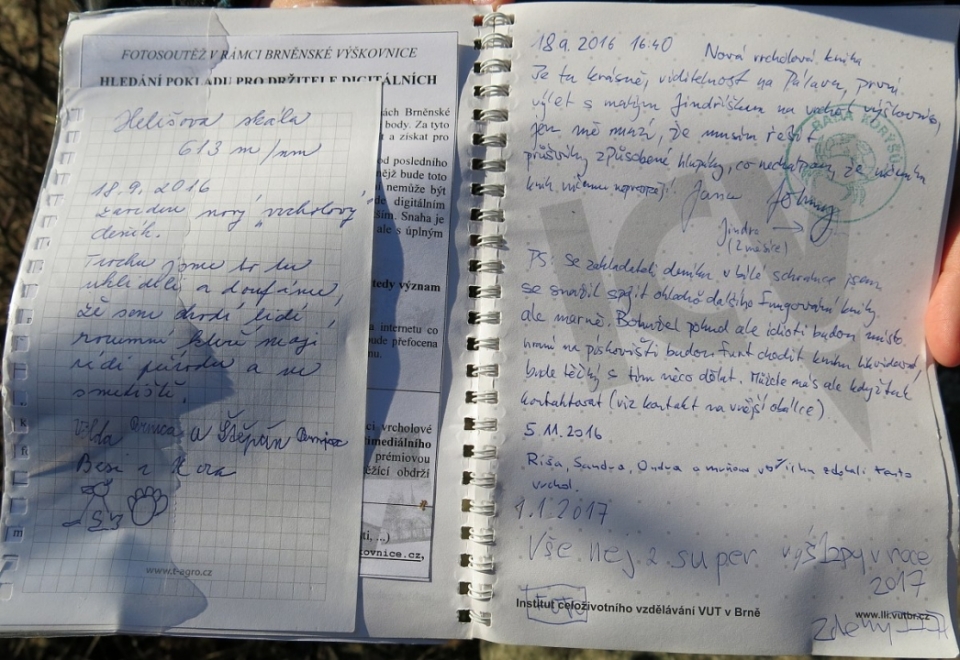 FOTOSOUTĚŽ V RÁMCI BRNĚNSKÉ VÝŠKOVNICE
HLEDÁNÍ POKLADU PRO DRŽITELE DIGITÁLNÍCH
ách Brněnské
body. Za tyto
t a získat pro
od posledního
nějž bude toto
nemůže být
de digitálním
ším. Snaha je
ale s úplným
tedy význam
a internetu co
bude přefocena
nu.
ci vrcholové
timediálního
prémiovou
ěžící obdrží
ti, ...)
kovnice.cz,
Helišova skála
613 m/nm
18.9.2016
zaveden nový "vrcholový"
deník.
Trochu jsme to tu
uklidili a doufáme,
že sem chodí lidé
rozumní kteří mají
rádi přírodu a ne
smetiště.
a Štěpán
www.t-agro.cz
18.9.2016 16:40 Nová vrcholová kniha
Je tu krásně, viditelnost na Pálavu, první
výlet s malým Jindříškem na vrchol výškovnice,
jen mě mrzí, že musím řešit
průšvihy způsobené hlupáky, co nechápou, že ničením
knih ničemu
Jana
Jindra
(2 měsíce)
PS: Se zakladateli deníku v bílé schránce jsem
se snažil spojit ohledně dalšího fungování knihy,
ale marně. Bohužel pokud ale idioti budou místo
hraní na pískovišti budou furt chodit knihu likvidovat,
bude těžký s tím něco dělat. Můžete mě ale kdyžtak
kontaktovat (viz kontakt na vnější obálce).
5.11.2016
Ríša, Sandra, Ondra a všichni zdolali tento
vrchol.
1.1.2017
Vše nej z super výšlapy v roce
2017
Institut celoživotního vzdělávání VUT v Brně
www.lli.vutbr.cz